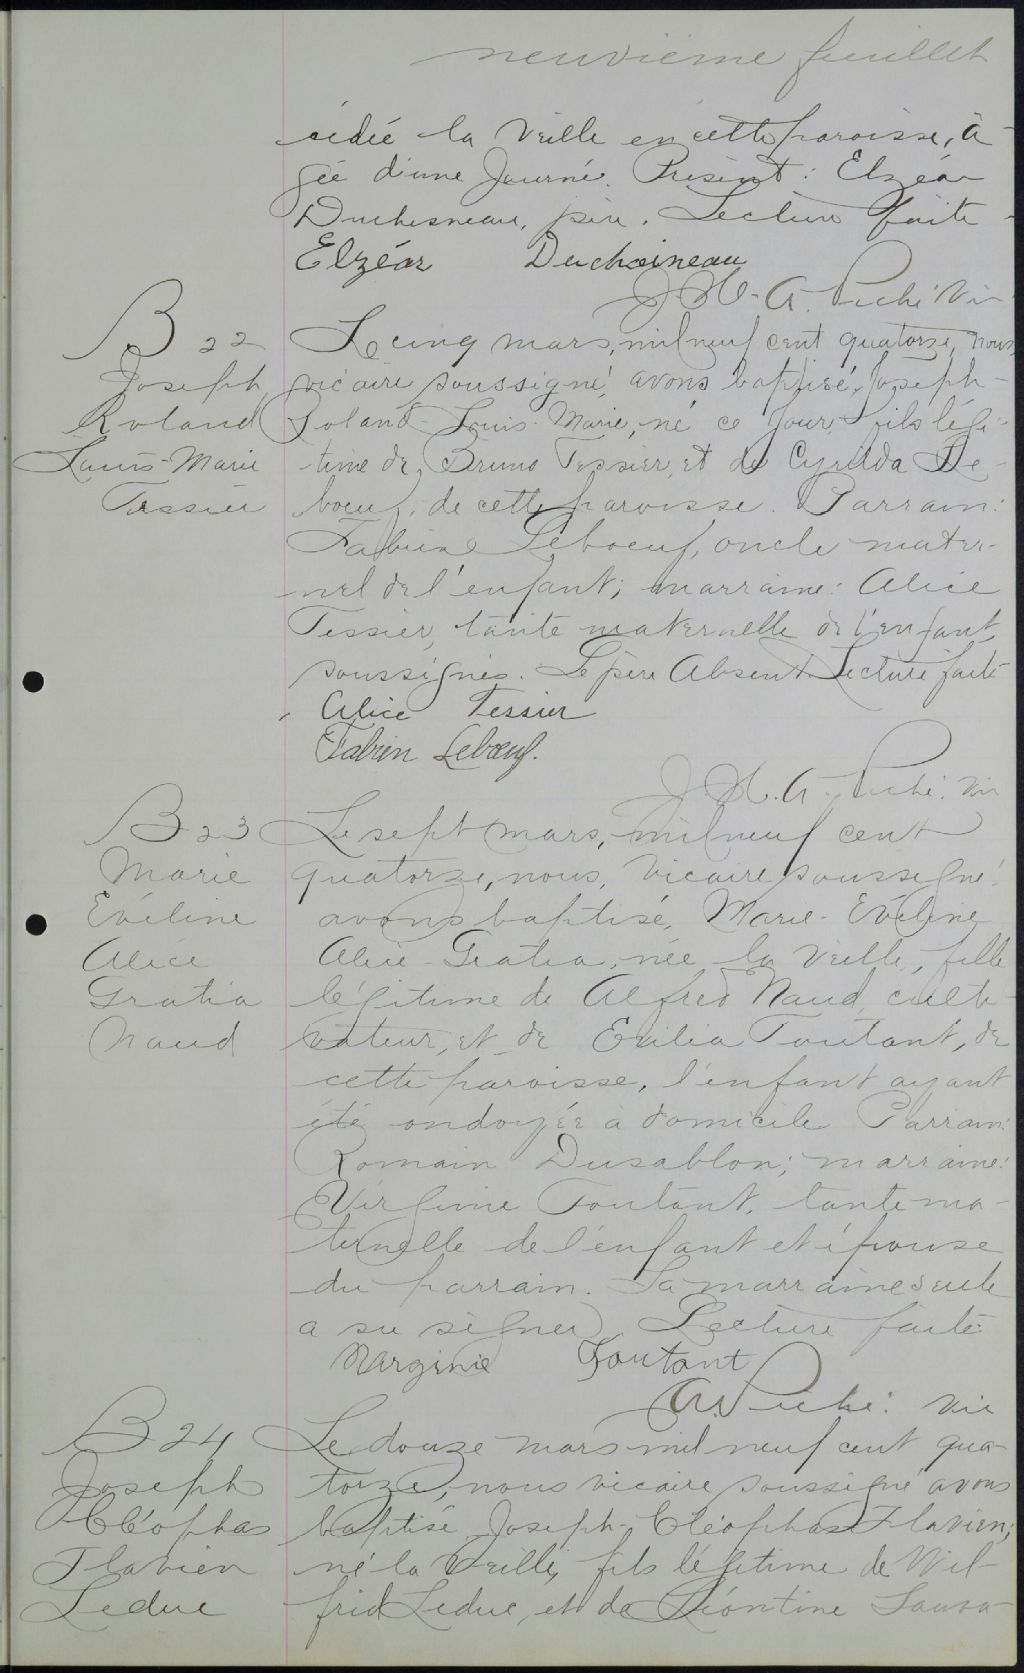 neuvième feuillet
cédée la veille en cette paroisse, â-
gée d'une Journé. Présent: Elzéar
Duchesneau, père. Lecture faite
Elzéar Duchaineau
J. H. A. Piché Vic
B 22
Joseph
Roland
Louis-Marie
Tessier
Le cinq mars, mil neuf cent quatorze, nous
vicaire soussigné avons baptisé, Joseph-
Roland-Louis-Marie, né ce jour, fils légi-
time de Bruno Tessier, et de Cyrilda Le-
boeuf, de cette paroisse. Parrain:
Fabien Leboeuf, oncle mater-
nel de l'enfant; marraine: Alice
Tessier, tante maternelle de l'enfant,
soussignés. Le père Absent. Lecture faite
Alice Tessier
Fabien Lebœuf.
J. H. A. Piché. Vic
B 23
Marie
Evéline
Alice
Gratia
Naud
Le sept mars, mil neuf cent
quatorze, nous, Vicaire soussigné
avons baptisé, Marie-Evéline
Alice-Gratia, née la veille, fille
légitime de Alfred Naud culti-
vateur, et de Toutant, de
cette paroisse, l'enfant ayant
été ondoyée à domicile Parrain:
Romain Dusablon; marraine:
Virginie Toutant, tante ma-
ternelle de l'enfant et épouse
du parrain. La marraine seule
a su signer. Lecture faite
Virginie Toutant
A. Piché: Vic
B 24
Joseph
Cléophas
Flavien
Leduc
Le douze mars mil neuf cent qua-
torze, nous vicaire soussigné avons
baptisé Joseph-Cléophas Flavien,
né la Veille, fils légitime de Wil-
frid Leduc, et de Léontine Sauva-